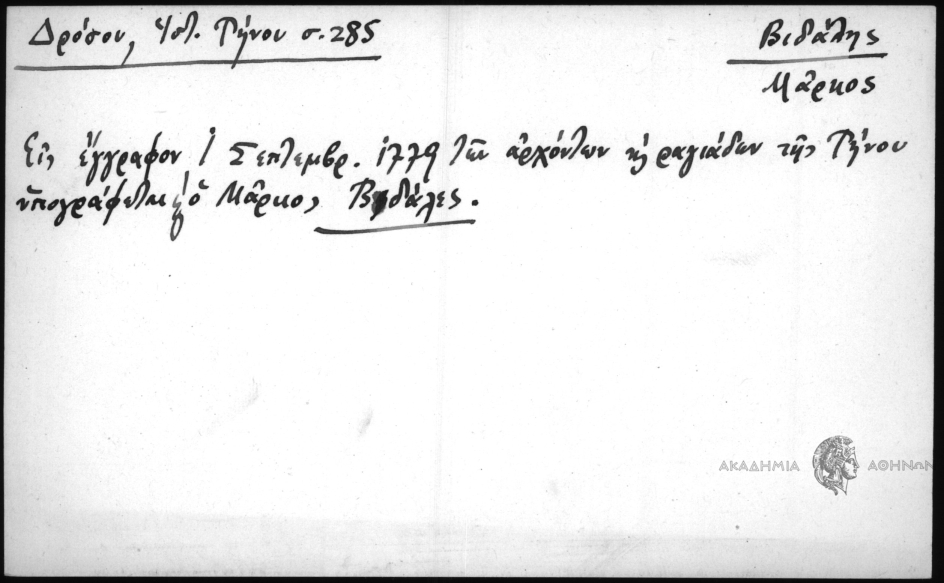 Δρόσου, Ἱστ. Τήνου σ. 285
Βιδάλης
Μᾶρκος
Εἰς ἔγγραφον 1 Σεπτεμβρ. 1779 τῶν ἀρχόντων κ̀ ραγιάδων τῆς Τήνου
ὑπογράφεται κ̀ ὁ Μᾶρκος Βιδάλες.
ΑΚΑΔΗΜΙΑ ΑΘΗΝΩΝ